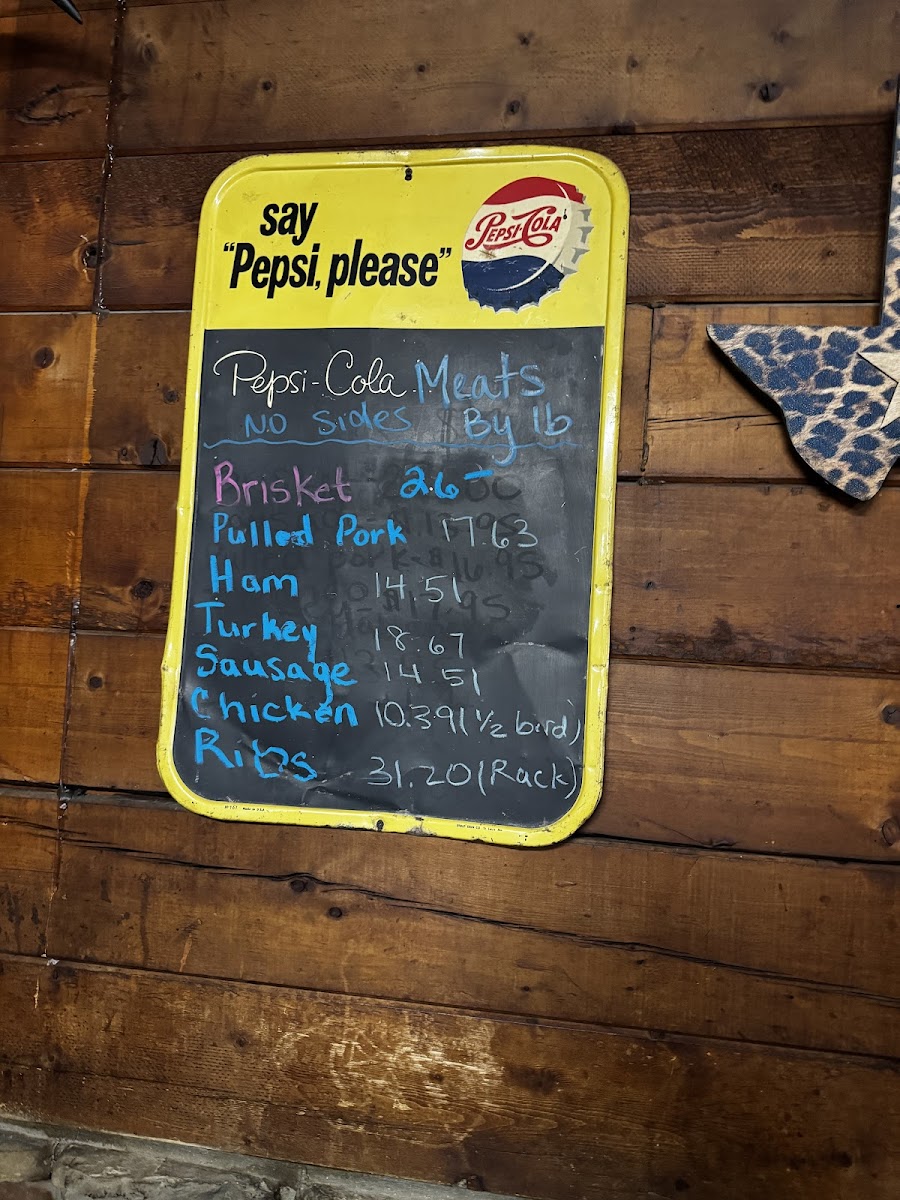 say
"Pepsi, please"
PEPSI-COLA
Pepsi-Cola Meats
NO Sides By lb
Brisket 26-
Pulled Pork 17.63
Ham 14.51
Turkey 18.67
Sausage 14.51
Chicken 10.39 (1/2 bird)
Ribs 31.20 (Rack)